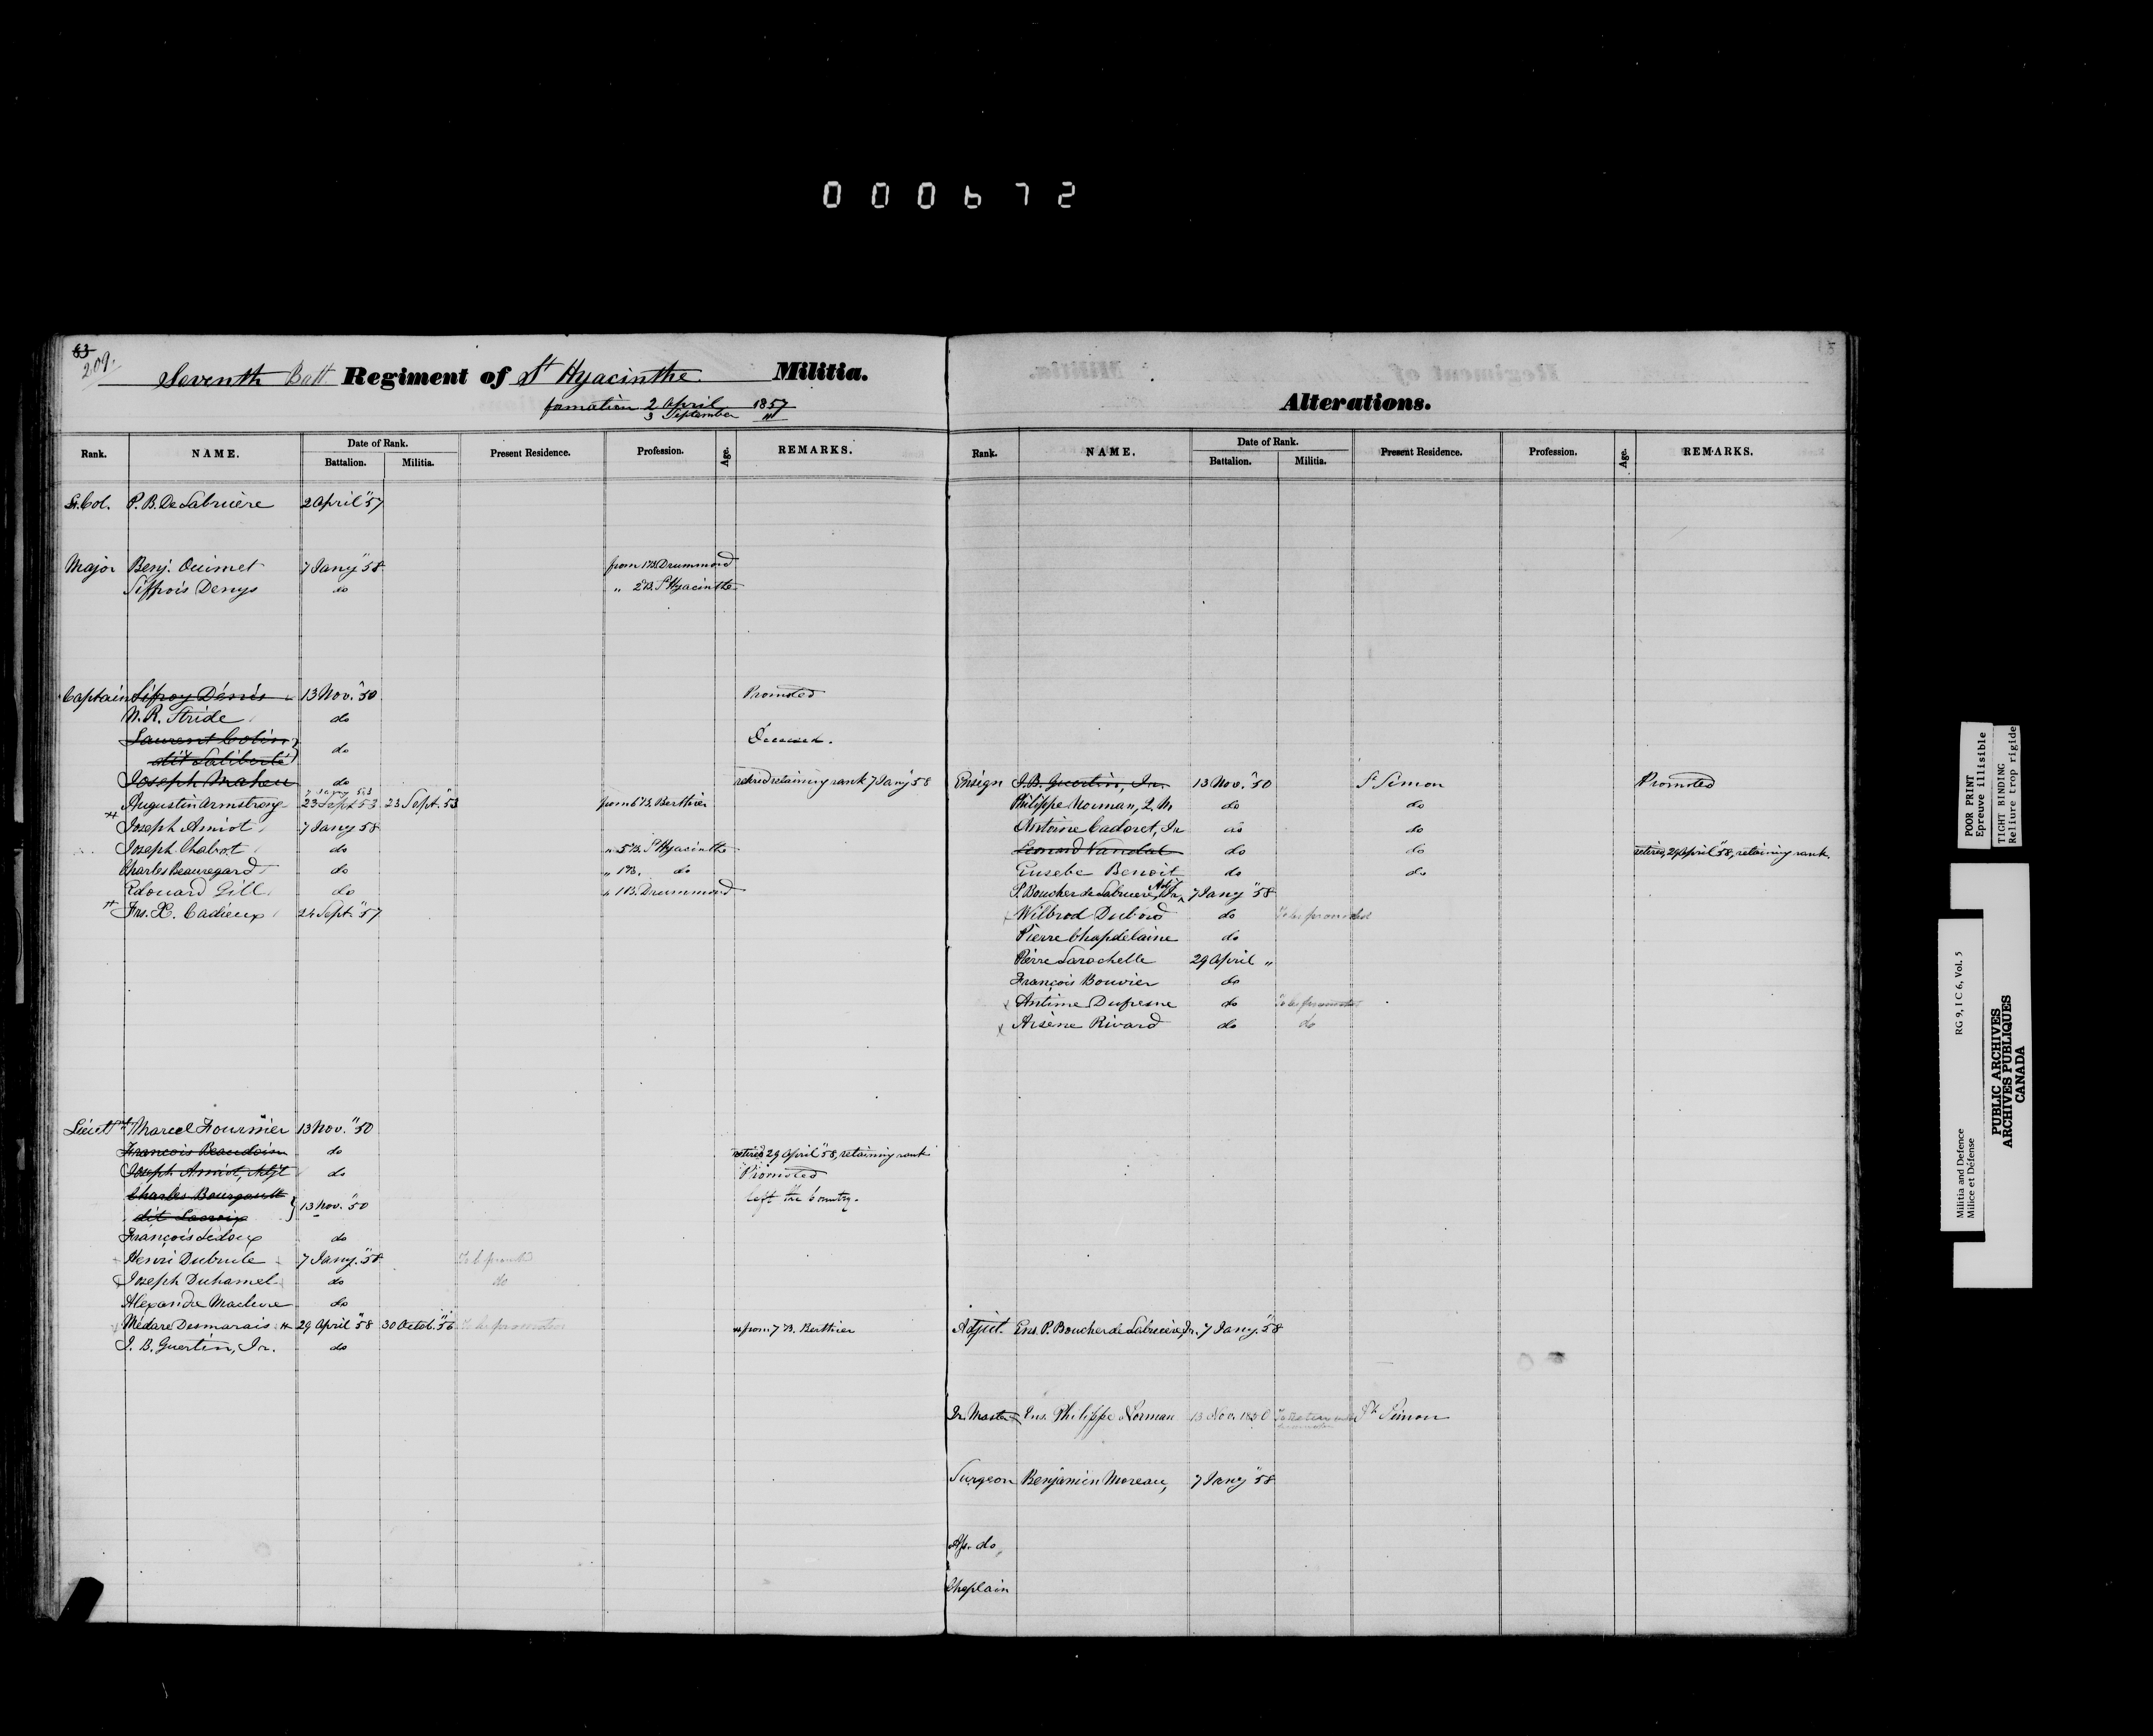 000672
63
209.
Seventh Batt Regiment of St Hyacinthe Militia.
formation 2 April 1857
3 September "
Rank. NAME. Date of Rank. Battalion. Militia. Present Residence. Profession. Age. REMARKS.
Lt. Col. P. B. De Labruère 2 April "57
Major Benj. Ouimet 7 Jany "58 from 1 B. Drummond
Siffrois Denys do " 2 B. St Hyacinthe
Captain Sifroy Dénis 13 Nov. "50 Promoted
N. R. Stride do
Laurent Colin
dit Laliberté } do Deceased.
Joseph Maheu do retired retaining rank 7 Jany 58
7 Jany 58
Augustin Armstrong 23 Sept 53 23 Sept. "53 from 6 B. Berthier
Joseph Amiot 7 Jany 58
Joseph Chabot do " 5 B. St Hyacinthe
Charles Beauregard do " 1 B. do
Edouard Gill do " 1 B. Drummond
Frs. X. Cadieux 24 Sept. "57
Lieutt Marcel Fournier 13 Nov. "50
Francois Beaudoin do retired 29 April "58, retaining rank
Joseph Amiot, Adjt do Promoted
Charles Bourgault
dit Lacroix } 13 Nov. "50 left the Country.
François Ledoux do
Henri Dubrule 7 Jany. "58
Joseph Duhamel do do
Alexandre do
Médare Desmarais 29 April "58 30 Octob. "56 To be promoted from 7 B. Berthier
J. B. Guertin, Jr. do
Alterations.
Rank. NAME. Date of Rank. Battalion. Militia. Present Residence. Profession. Age. REMARKS.
Ensign J. B. Guertin, Jr. 13 Nov. "50 St Simon Promoted
Philippe Norman, Q. M do do
Antoine Cadoret, Jr do do
Leonard Vandal do do retired, 29 April "58, retaining rank
Eusebe Benoit do do
P. Boucher de Labruère, Jr. Adjt 7 Jany "58
Wilbrod Dubord do To be promoted
Pierre Chapdelaine do
Pierre Larochelle 29 April "
François Bouvier do
Antime Dufresne do To be promoted
Arsène Rivard do do
Adjut. Ens. P. Boucher de Labruère, Jr. 7 Jany. "58
Qr. Master Ens. Philippe Norman 13 Nov. 1850 St Simon
Surgeon Benjamin Moreau, 7 Jany "58
As. do
Chaplain
POOR PRINT
Epreuve illisible
TIGHT BINDING
Reliure trop rigide
Militia and Defence
Milice et Défense
RG 9, I C 6, Vol. 5
PUBLIC ARCHIVES
ARCHIVES PUBLIQUES
CANADA